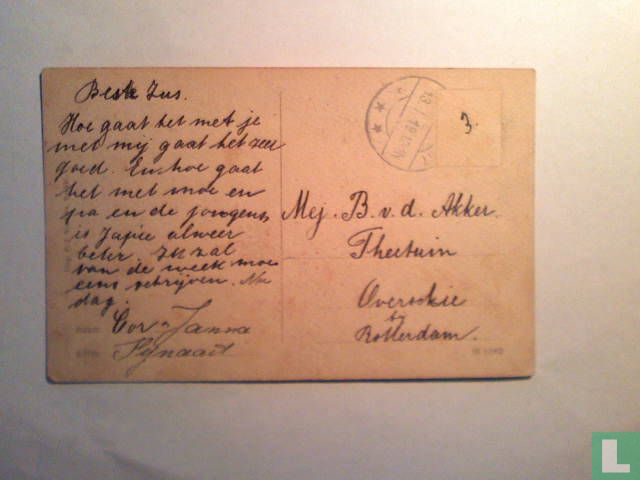 Beste Zus.
Hoe gaat het met je
met mij gaat het zeer
goed. En hoe gaat
het met moe en
pa en de jongens
is Japie alweer
beter. Ik zal
van de week moe
eens schrijven. Nu
dag.
Cor Janna
Fijnaart
3.
Mej. B. v. d. Akker.
Theetuin
Overschie
by
Rotterdam.